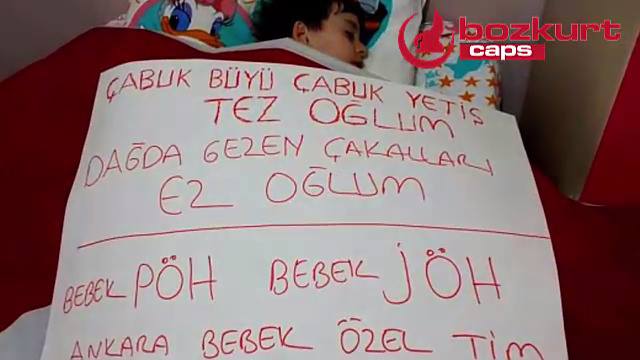 bozkurt
caps
ÇABUK BÜYÜ ÇABUK YETİŞ
TEZ OĞLUM
DAĞDA GEZEN ÇAKALLARI
EZ OĞLUM
BEBEK PÖH BEBEK JÖH
ANKARA BEBEK ÖZEL TİM